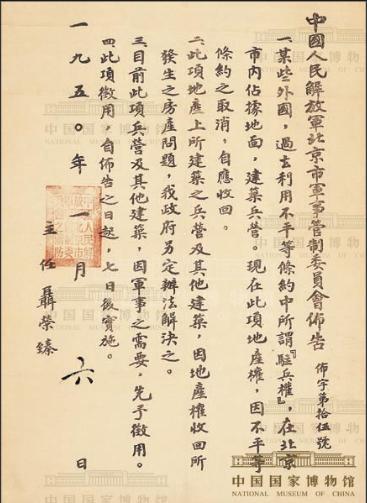 中國人民解放軍北京市軍事管制委員會佈告
佈字第拾伍號
一、某些外國，過去利用不平等條約中所謂『駐兵權』，在北京
市內佔據地面，建築兵營。現在此項地產權，因不平等
條約之取消，自應收回。
二、此項地產上所建築之兵營及其他建築，因地產權收回所
發生之房產問題，我政府另定辦法解決之。
三、目前此項兵營及其他建築，因軍事之需要，先予徵用。
四、此項徵用，自佈告之日起，七日後實施。
主任聶榮臻
一九五〇年一月六日
中国国家博物馆
NATIONAL MUSEUM OF CHINA